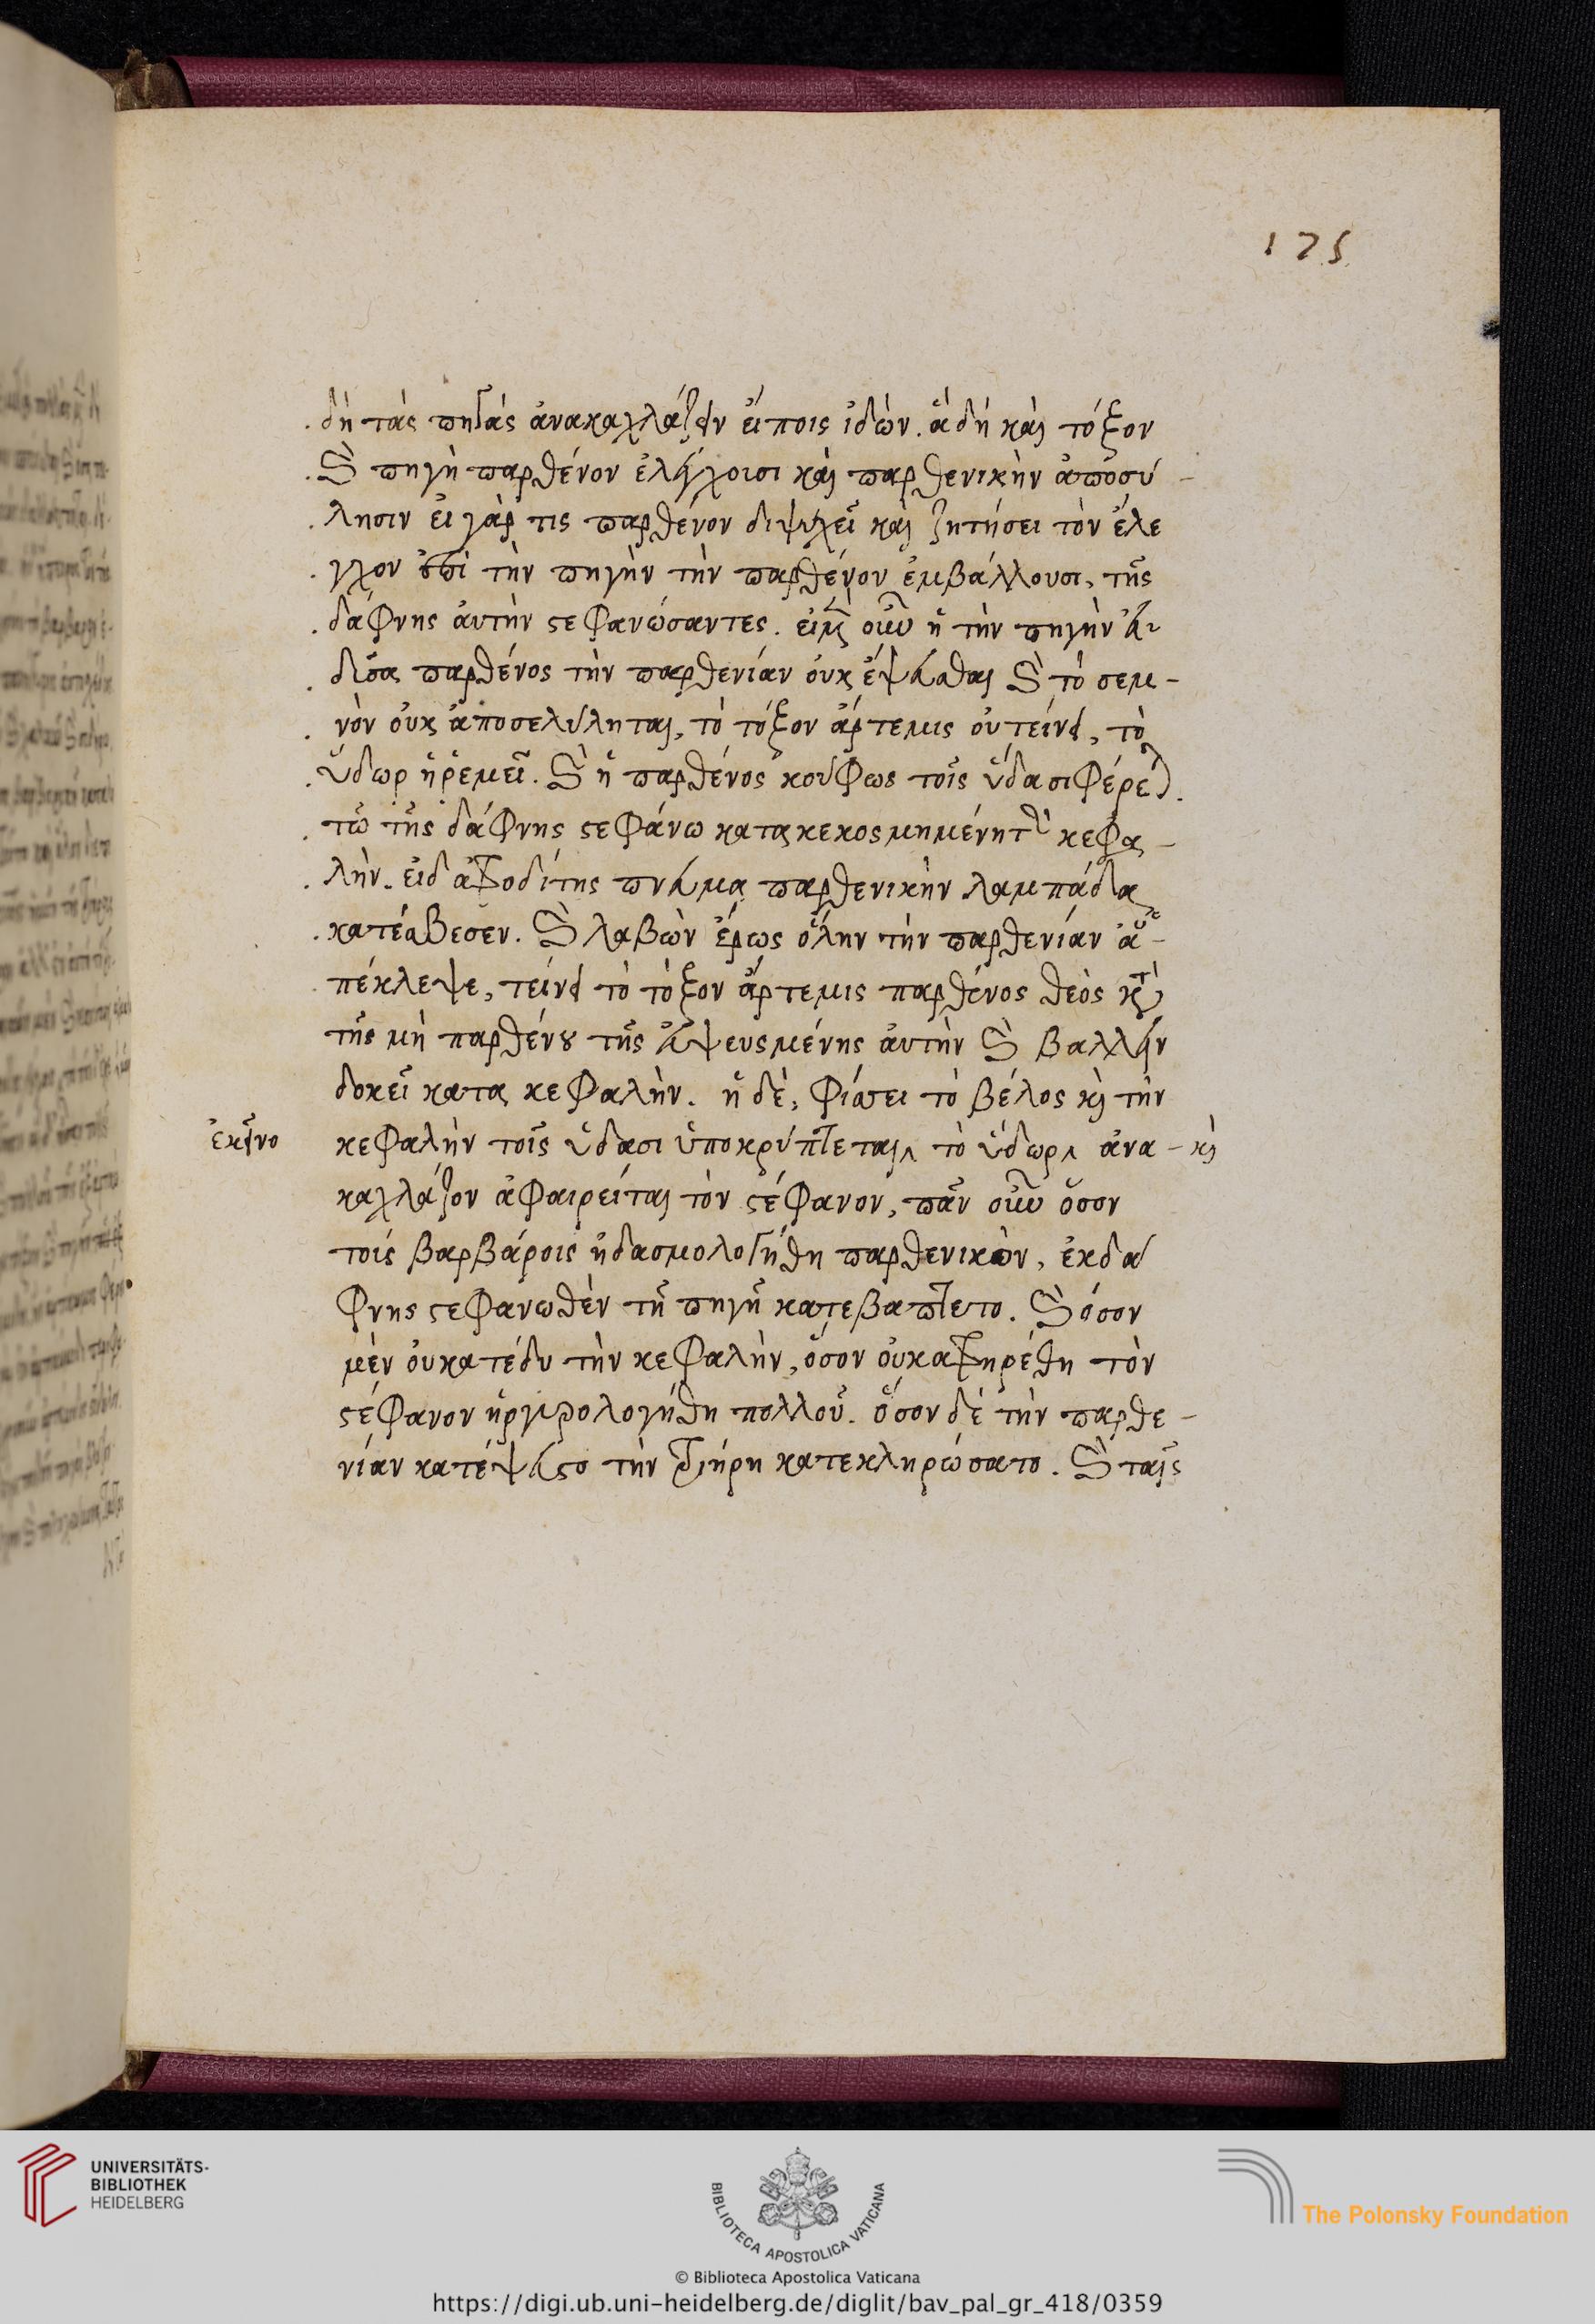 175
δὴ τὰς πηγὰς ἀνακαχλάζειν εἴποις ἰδών. ἃ δὴ καὶ τόξον
καὶ πηγὴ παρθένον ἐλέγχουσι καὶ παρθενικὴν ἀποσύ-
λησιν εἰ γάρ τις παρθένον διψιλεῖ καὶ ζητήσει τὸν ἔλε
γχον ἐπὶ τὴν πηγὴν τὴν παρθένον ἐμβάλλουσι, τῆς
δάφνης ἀυτὴν στεφανώσαντες. εἰ μὲν οὖν ἡ τὴν πηγὴν
παρθένος τὴν παρθενίαν οὐκ ἔψευσται καὶ τὸ σεμ-
νὸν οὐκ ἀποσεσύληται, τὸ τόξον ἄρτεμις οὐ τείνει, τὸ
ὕδωρ ἠρεμεῖ. καὶ ἡ παρθένος κούφως τοῖς ὕδασι φέρεται.
τῶ τῆς δάφνης στεφάνω κατακεκοσμημένη τὴν κεφα-
λήν. εἰ δ ἀφροδίτης πνεῦμα παρθενικὴν λαμπάδα
κατέσβεσεν. καὶ λαβὼν ἔρως ὅλην τὴν παρθενίαν ἀ-
πέκλεψε, τείνει τὸ τόξον ἄρτεμις παρθένος θεὸς κατὰ
τῆς μὴ παρθένου τῆς ἐψευσμένης ἀυτὴν καὶ βαλλεῖν
δοκεῖ κατα κεφαλήν. ἡ δὲ, φρίσσει τὸ βέλος καὶ τὴν
ἐκεῖνο
κεφαλὴν τοῖς ὕδασι ὑποκρύπτεται, τὸ ὕδωρ ἀνα- καὶ
καχλάζον ἀφαιρεῖται τὸν στέφανον, πᾶν οὖν ὅσον
τοῖς βαρβάροις ἠδασμολογήθη παρθενικὸν, ἐκ δά
φνης στεφανωθὲν τῆ πηγῆ κατεβαπτετο. καὶ ὅσον
μὲν οὐ κατέδυ τὴν κεφαλὴν, ὅσον οὐκ ἀφηρέθη τὸν
στέφανον ἠργυρολογήθη πολλοῦ. ὅσον δὲ τὴν παρθε-
νίαν κατέψευστο τὴν τριήρη κατεκληρώσατο. καὶ ταῖς
UNIVERSITÄTS-
BIBLIOTHEK
HEIDELBERG
BIBLIOTECA APOSTOLICA VATICANA
The Polonsky Foundation
© Biblioteca Apostolica Vaticana
https://digi.ub.uni-heidelberg.de/diglit/bav_pal_gr_418/0359